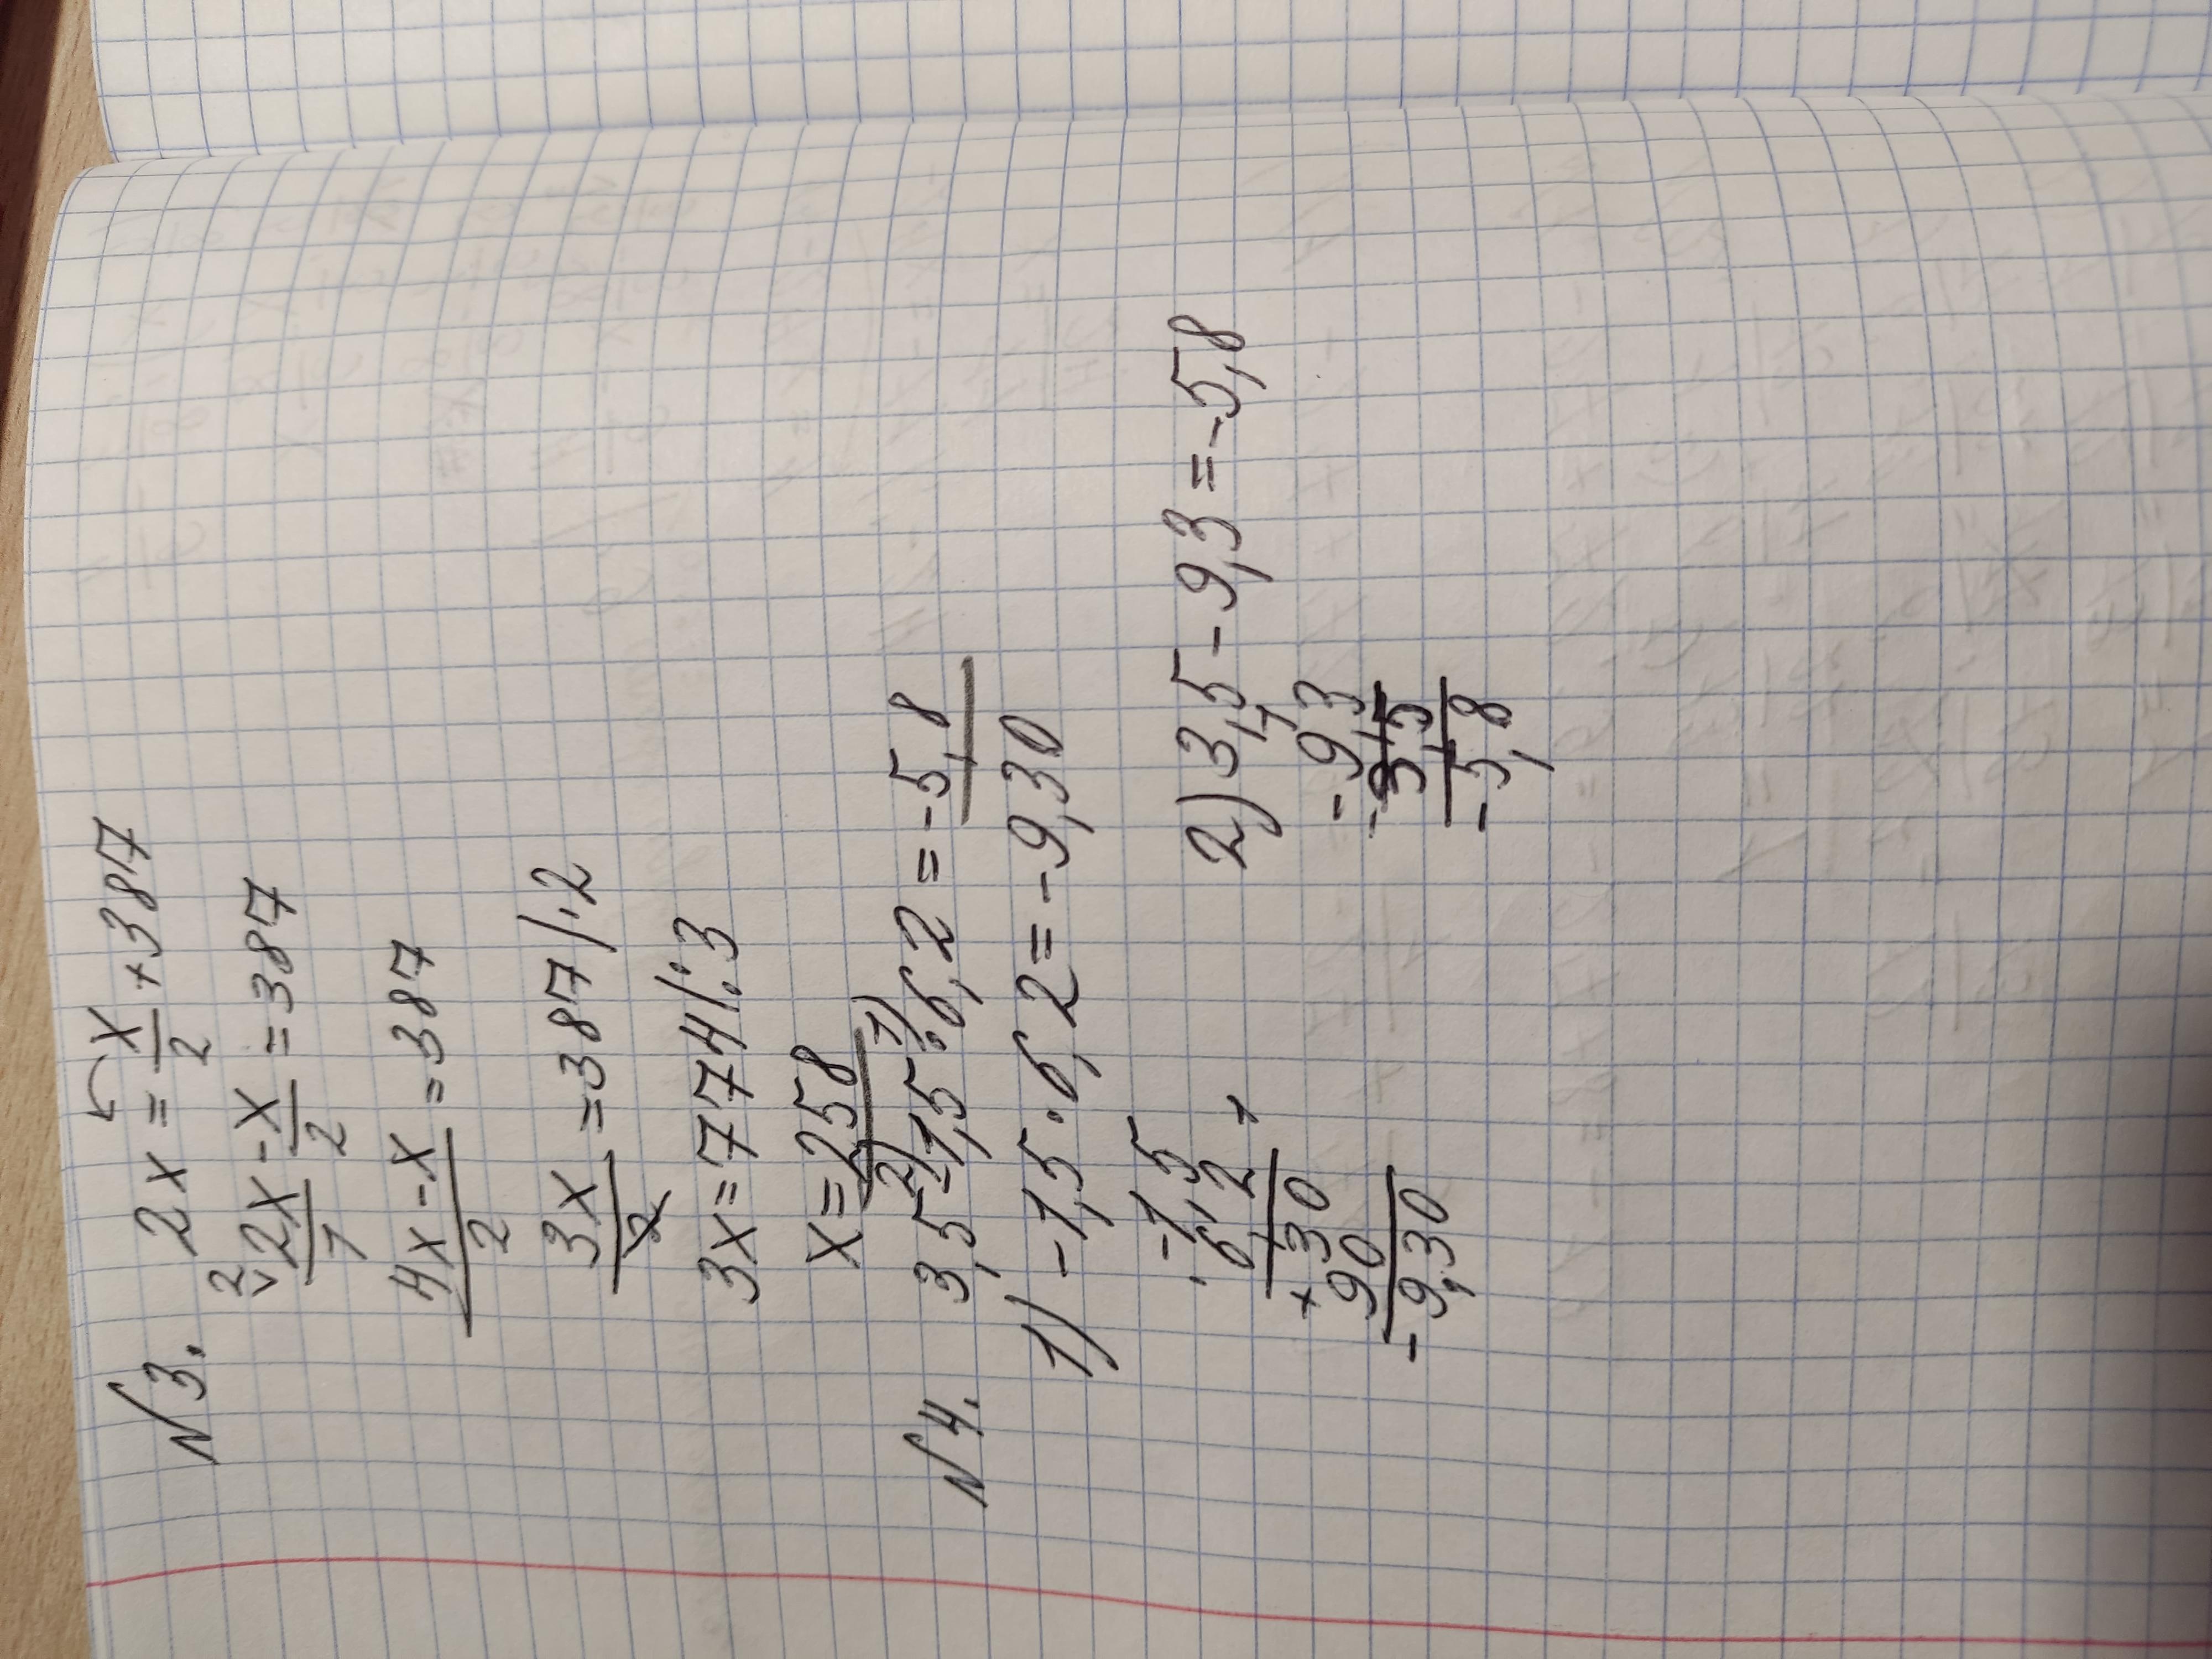 N3. 2x = x/2 + 387
2 2x/1 - x/2 = 387
4x - x/2 = 387
3x/2 = 387 /·2
3x = 774 /:3
x = 258
N4. 3,5 2)- 1,5 1)· 6,2 = -5,8
1) -1,5 · 6,2 = -9,30
-1,5
· 6,2 +
+ 30
90
-9,30
2) 3,5 - 9,3 = -5,8
-9,3
3,5
-5,8